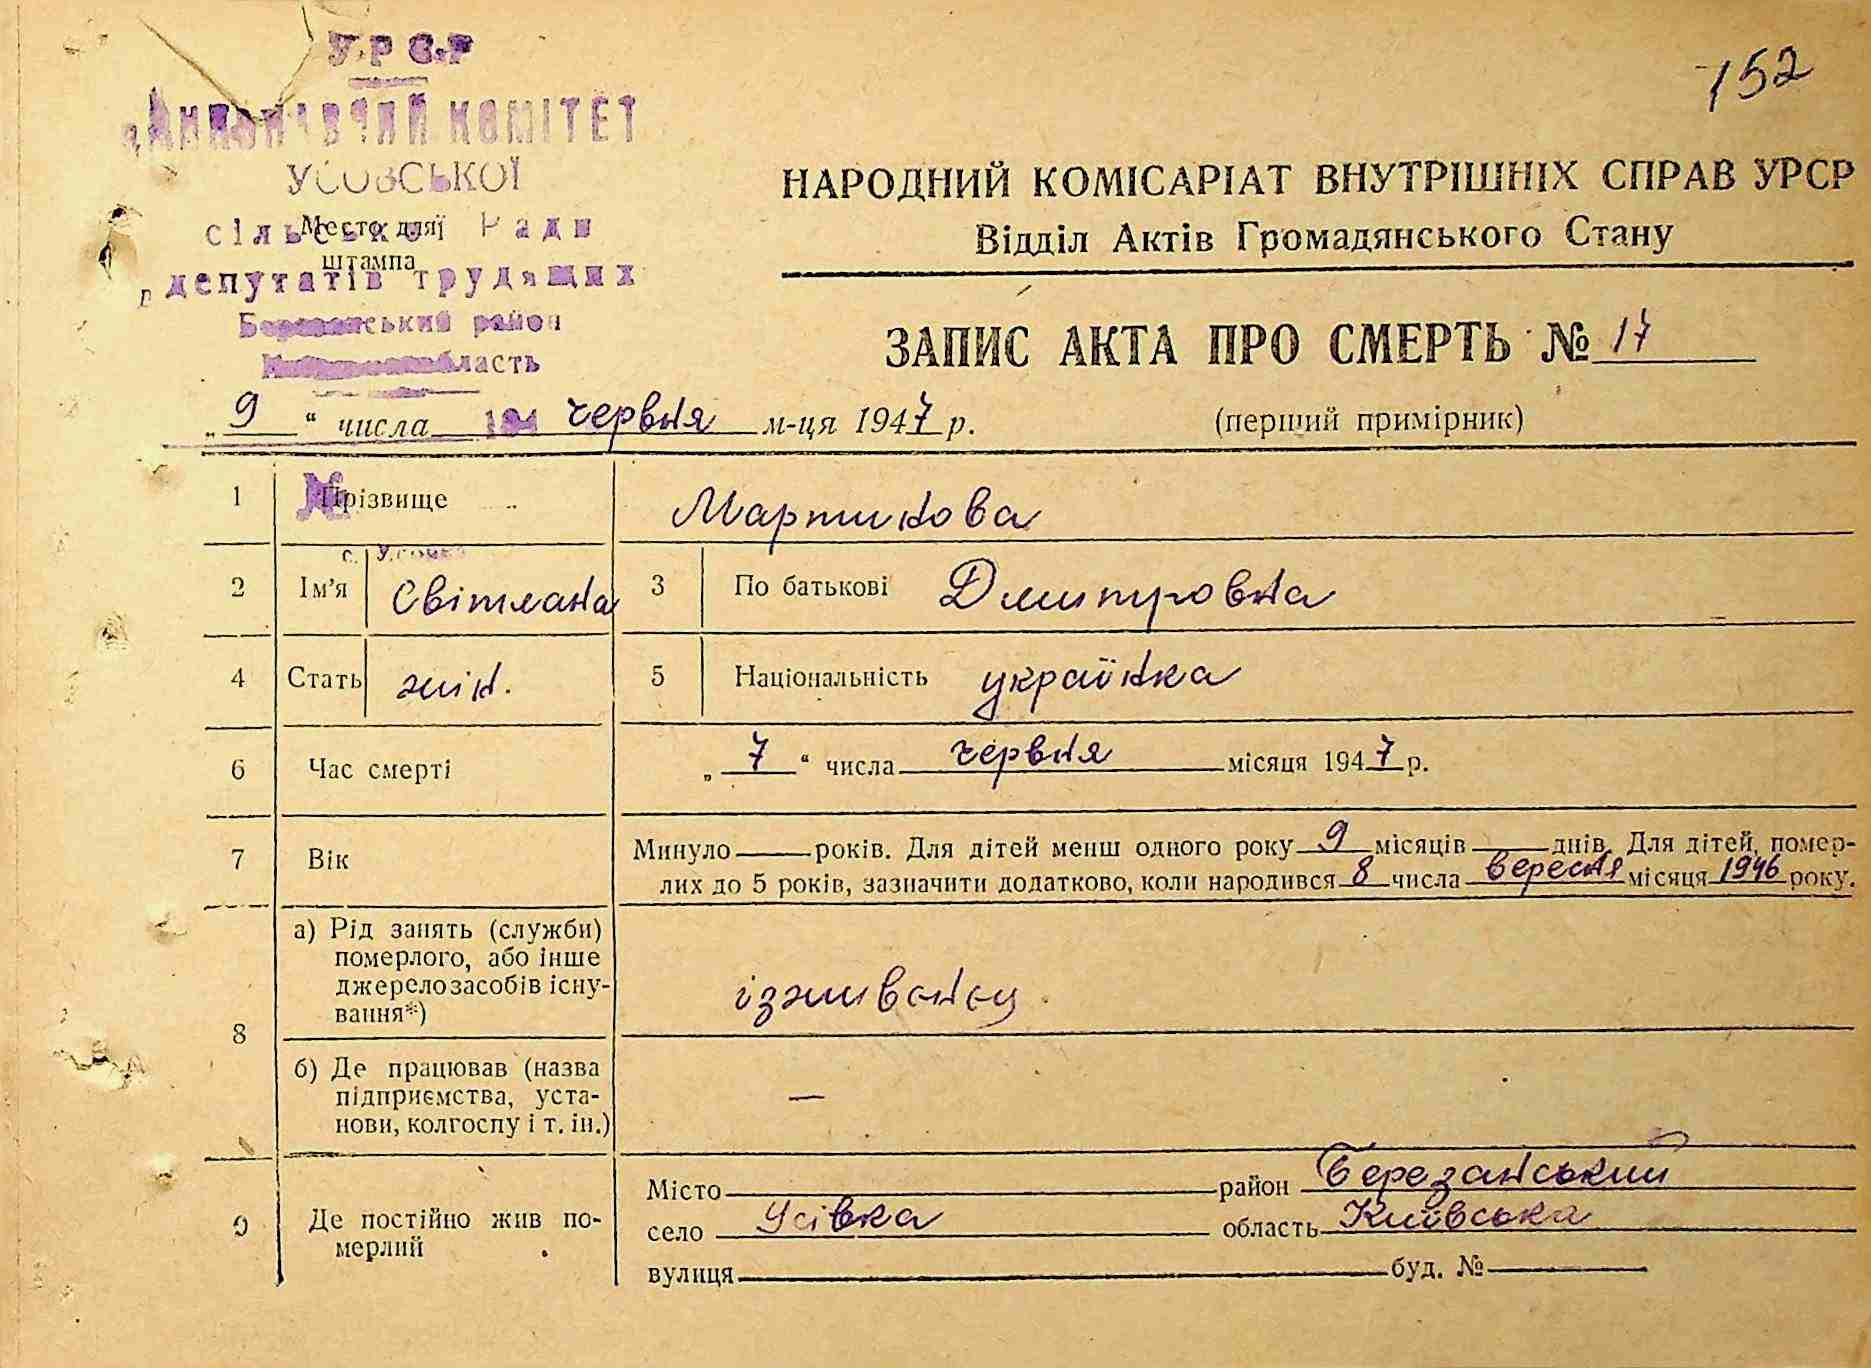 152
УРСР
ВИКОНАВЧИЙ КОМІТЕТ
УСОВСЬКОЇ
сільської Ради
Место для
штампа
депутатів трудящих
Березанський район
область
НАРОДНИЙ КОМІСАРІАТ ВНУТРІШНІХ СПРАВ УРСР
Відділ Актів Громадянського Стану
ЗАПИС АКТА ПРО СМЕРТЬ № 17
„ 9 “ числа 194 червня м-ця 1947 р.
(перший примірник)
1 № Прізвище Мартинова
с. Усовка
2 Ім'я Світлана 3 По батькові Дмитровна
4 Стать жін. 5 Національність українка
6 Час смерті „ 7 “ числа червня місяця 1947 р.
7 Вік Минуло — років. Для дітей менш одного року 9 місяців — днів. Для дітей, помер-
лих до 5 років, зазначити додатково, коли народився 8 числа вересня місяця 1946 року.
8 а) Рід занять (служби)
померлого, або інше
джерело засобів існу-
вання*)
ізживенец
б) Де працював (назва
підприємства, уста-
нови, колгоспу і т. ін.)
—
9 Де постійно жив по-
мерлий
Місто район Березанський
село Усівка область Київська
вулиця буд. №